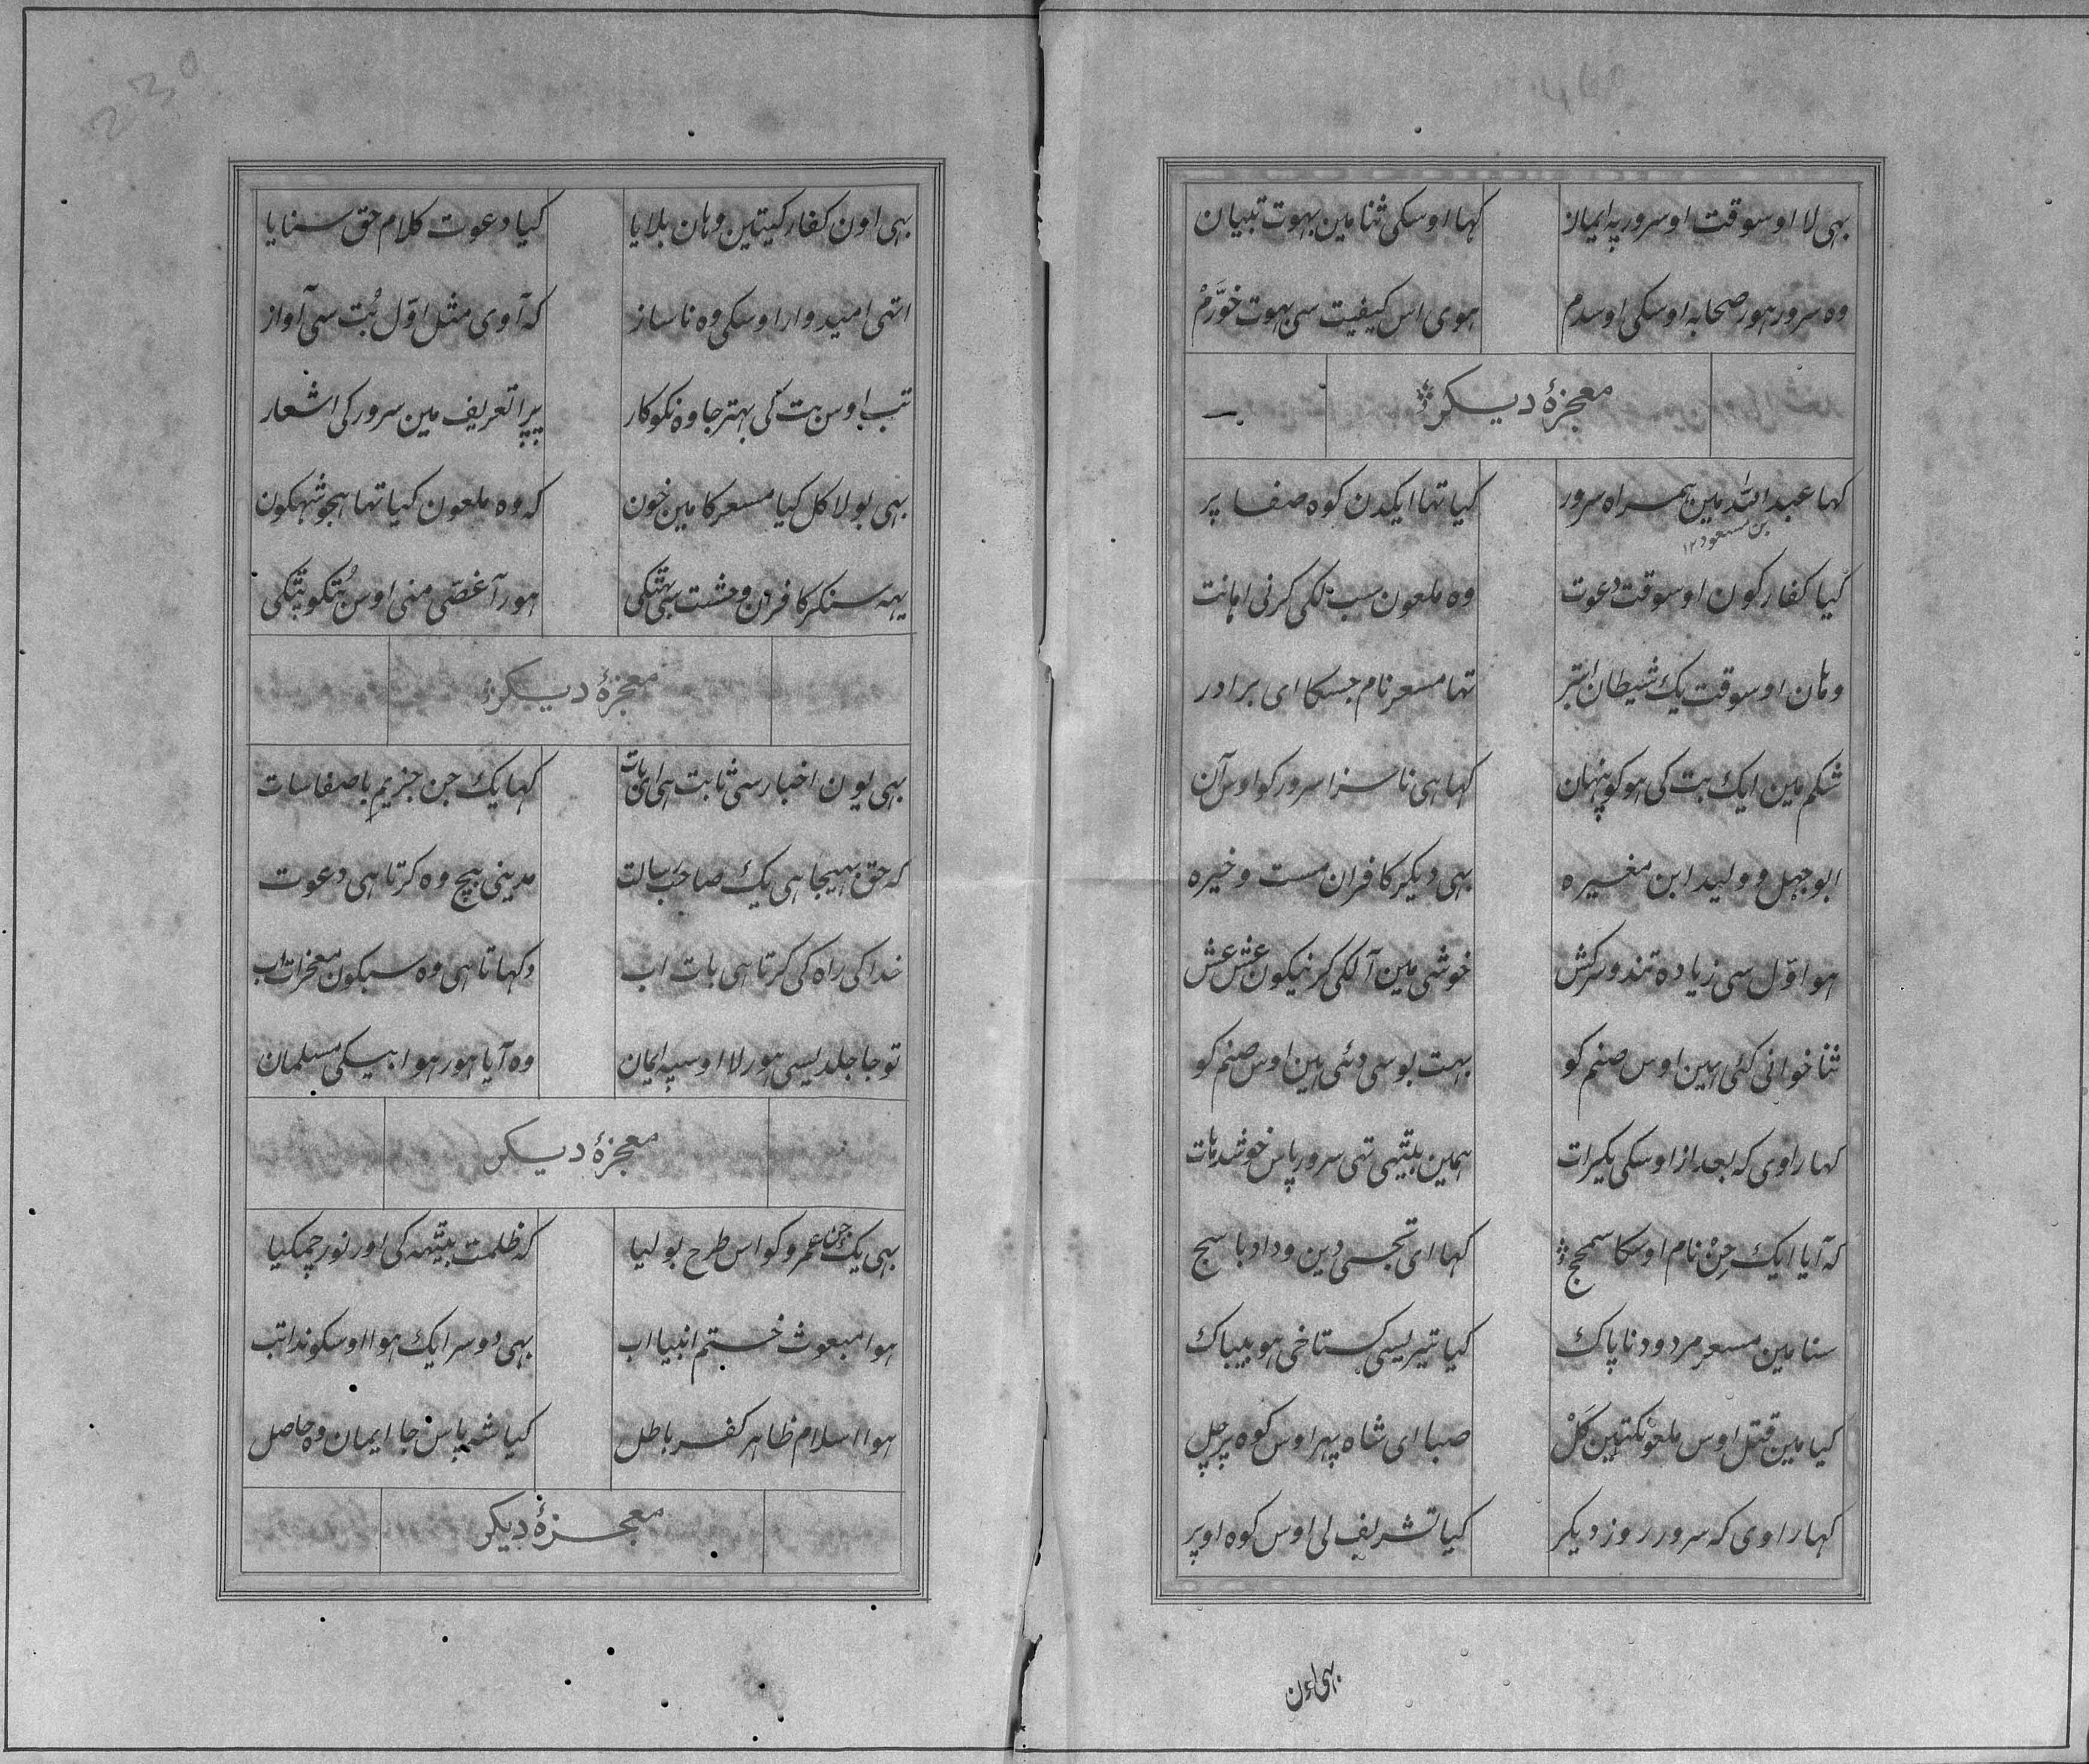 بهی لا اوسوقت اوسرور په ایمان کہا اوسکی ثنا مین بهوت تبیان
وه سرور هور صحابه اوسکی اوسدم هوی اس کیفیت سی بهوت خوَّرمْ
معجزهٔ دیکر
کہا عبد اللّٰه مین همراه سرور کیا تها ایکدن کوه صفا پر
بن مسعود ۱۲
کیا کفار کون اوسوقت دعوت وه ملعون سب لگی کرنی اهانت
وهان اوسوقت یک شیطان ابتر تها مسعر نام جسکا ای برادر
شکم مین ایک بت کی هوکو پنهان کہا هی ناسزا سرور کو اوس آن
ابوجهل و ولید ابن مغیره بهی دیکر کافران مست و خیره
هوا اوّل سی زیاده تند و سرکش خوشی مین آ لگی کرنیکون عش عش
ثنا خوانی کئی هین اوس صنم کو بهت بوسی دئی هین اوس صنم کو
کہا راوی که بعد از اوسکی یکرات همین بیٹهی تهی سرور پاس خوشدهات
که آیا ایک جِنْ نام اوسکا سمحج کہا ای تجسی دین و داد با سج
سنا مین مسعر مردود ناپاک کیا تیریسی گستاخی هو بیباک
کیا مین قتل اوس ملعونکتین کَلْ صبا ای شاه پهر اوس کوه پر چل
کہا راوی که سرور روز دیکر کیا تشریف لی اوس کوه اوپر
بهی اون
بهی اون کفار کیتین وهان بلایا کیا دعوت کلام حق سنایا
اتهی امیدوار اوسکی وه ناساز که آوی مثل اوّل بُت سی آواز
تب اوس بت کی بهتر جا وه نکوکار پڑا تعریف مین سرور کی اشعار
بهی بولا کل کیا مسعر کا مین خون که وه ملعون کیا تها هجو شهکون
یهه سنکر کافران وحشت سی بتکی هور آ غصّی منی اوس بُتکو پتکی
معجزهٔ دیکر
بهی یون اخبار سی ثابت هی ای بات کہا یک جن جزیم با صفا سات
که حق بهیجا هی یک صاحب رسالت مدینی بیچ وه کرتا هی دعوت
خدا کی راه کی کرتا هی بات اب دکهاتا هی وه سبکون معجزات اب
تو جا جلدیسی هور لا اوسپه ایمان وه آیا هور هوا بیکی مسلمان
معجزهٔ دیکر
بهی یک جن عمرو کو اس طرح بولیا که ظلمت بیٹهه کی اور نور چمکیا
هوا مبعوث ختم انبیا اب بهی دوسر ایک هوا اوسکو ندا تب
هوا اسلام ظاهر کفر باطل کیا شه پاس جا ایمان وه حاصل
معجزهٔ دیکر